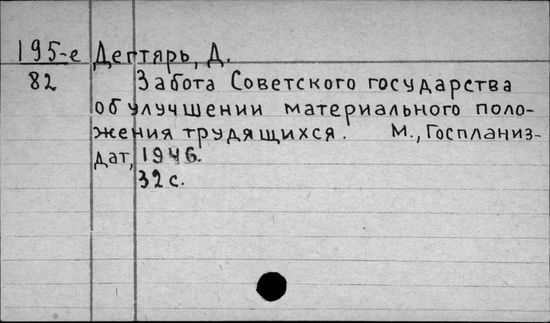 195-е Дегтярь, Д.
82 Забота Советского государства
об улучшении материального поло-
жения трудящихся. М., Госпланиз-
дат, 1946.
32 с.